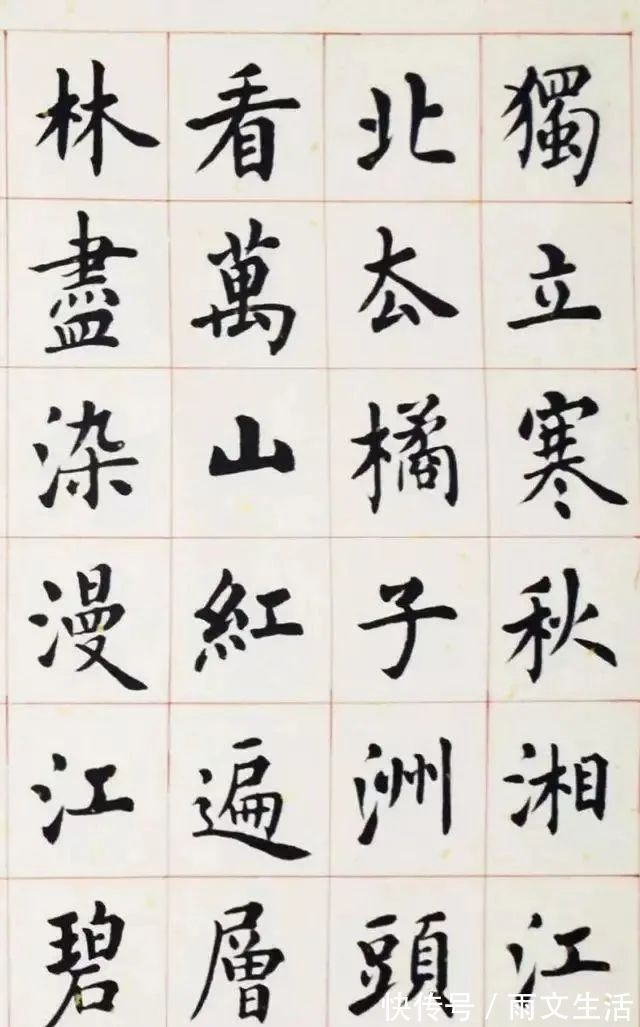 獨立寒秋湘江
北厺橘子洲頭
看萬山紅遍層
林盡染漫江碧
快传号/雨文生活